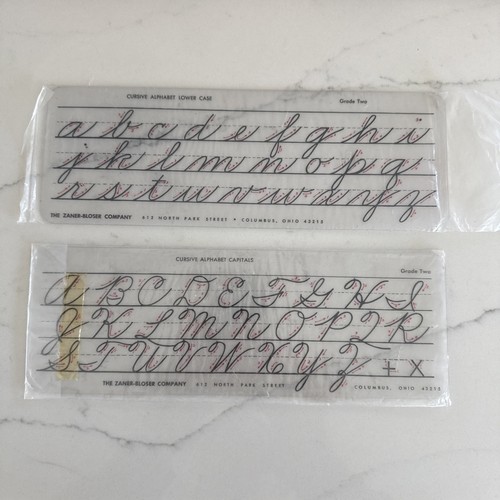 CURSIVE ALPHABET LOWER CASE Grade Two
a b c d e f g h i
j k l m n o p q
r s t u v w x y z
THE ZANER-BLOSER COMPANY 612 NORTH PARK STREET • COLUMBUS, OHIO 43215
CURSIVE ALPHABET CAPITALS Grade Two
A B C D E F G H I
J K L M N O P Q R
S T U V W X Y Z + X
THE ZANER-BLOSER COMPANY 612 NORTH PARK STREET COLUMBUS, OHIO 43215